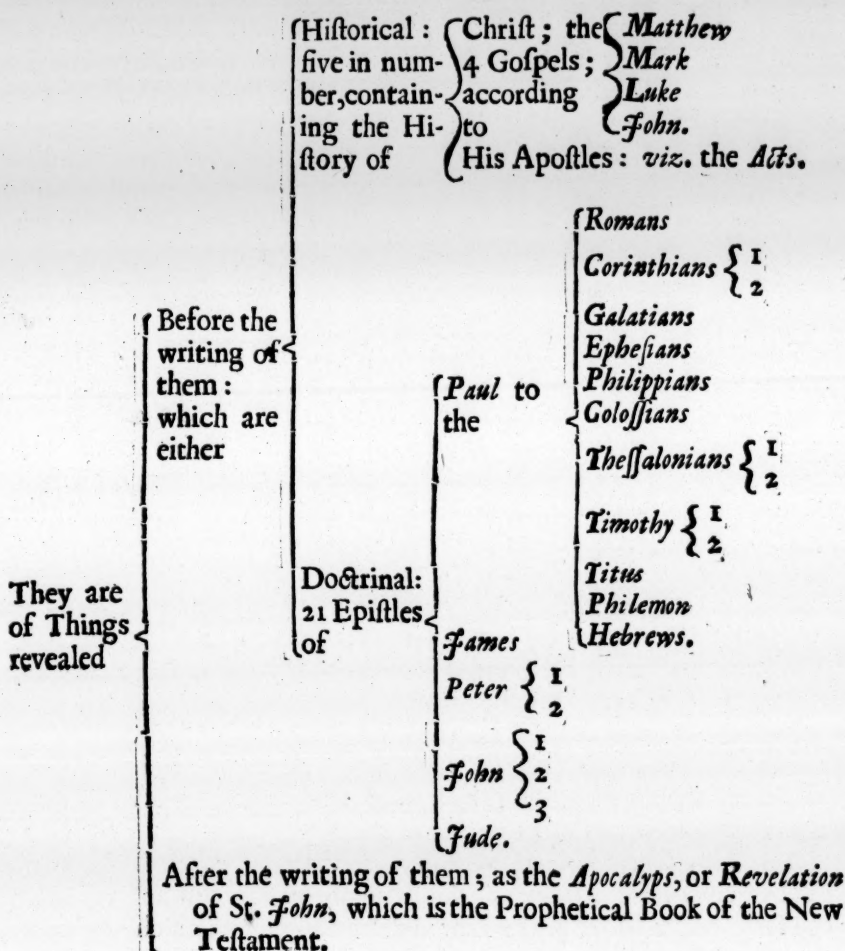 They are
of Things
revealed
Before the
writing of
them :
which are
either
Hiſtorical :
five in num-
ber,contain-
ing the Hi-
ſtory of
Chriſt ; the
4 Goſpels ;
according
to
Matthew
Mark
Luke
John.
His Apoſtles : viz. the Acts.
Doctrinal:
21 Epiſtles
of
Paul to
the
Romans
Corinthians { 1
2
Galatians
Epheſians
Philippians
Coloſſians
Theſſalonians { 1
2
Timothy { 1
2
Titus
Philemon
Hebrews.
James
Peter { 1
2
John { 1
2
3
Jude.
After the writing of them ; as the Apocalyps, or Revelation
of St. John, which is the Prophetical Book of the New
Teſtament.